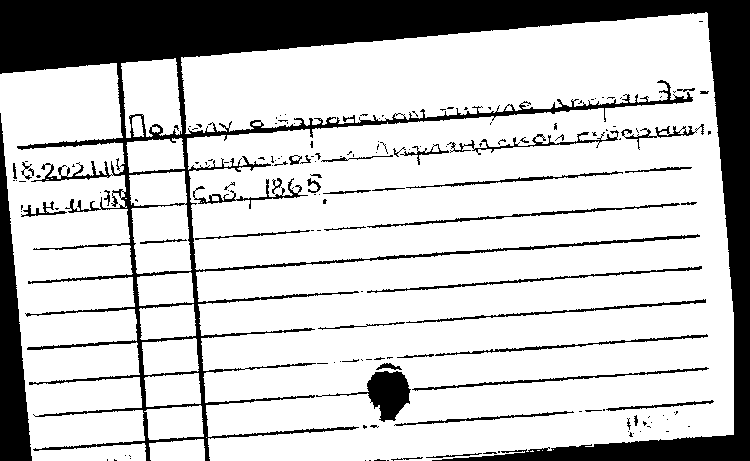 По делу о баронском титуле дворян Эст-
ляндской и Лифляндской губернии.
18.202.1.116
Спб., 1865.